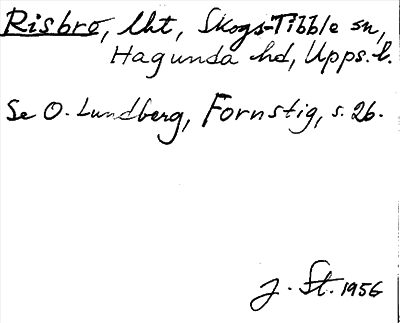 Risbro, lht, Skogs-Tibble sn,
Hagunda hd, Upps. l.
Se O. Lundberg, Fornstig, s. 26.
J. St. 1956